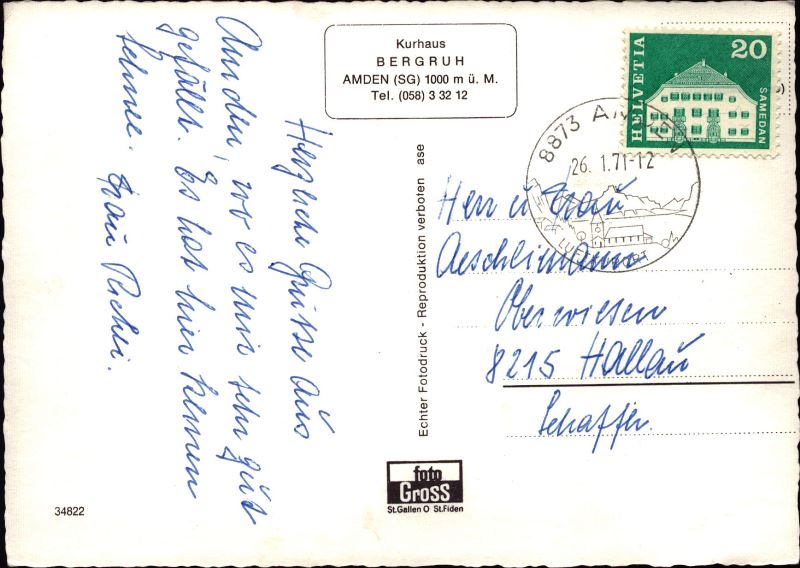 Kurhaus
BERGRUH
AMDEN (SG) 1000 m ü. M.
Tel. (058) 3 32 12
HELVETIA
20
SAMEDAN
8873 AMDEN
26. 1.71-12
LUFTKURORT
Herzliche Grüsse aus
Amden, wo es mir sehr gut
gefällt. Es hat hier keinen
schnee. Frau
Herr u Frau
Aeschlimann
Oberwiesen
8215 Hallau
Schaffh.
Echter Fotodruck - Reproduktion verboten ase
foto
Gross
St.Gallen O St.Fiden
34822